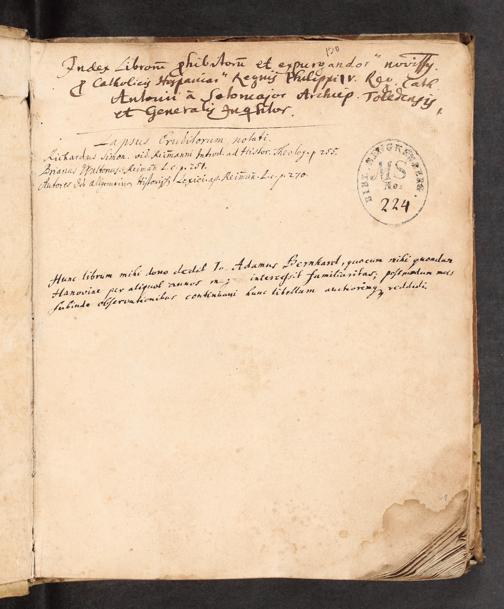 130
Index Librorū phibitorū et expurgandor" noviss.
p Catholicis Hispaniar" Regnis Philippi IV. Reg. Cath
Antonii à Sotomajor Archiep. Toletensis
et Generalis Inqsitor.
Lapsus Eruditorum notati.
Richardus Simon. vid. Reimanni Introd. ad Histor. Theolog. p. 255.
Brianus Waltonus. Reiman. l. c. p. 251.
Autores des allgemeinen Historisch. Lexici. Reiman. l. c. p. 270.
BIBL. MS No: 224
Hunc librum mihi dono dedit Jo. Adamus Bernhard, quocum mihi quondam
Hanoviae per aliquot annos intercessit familiaritas, postmodum meis
subinde observationibus continuavi hunc libellum auctioremq reddidi.